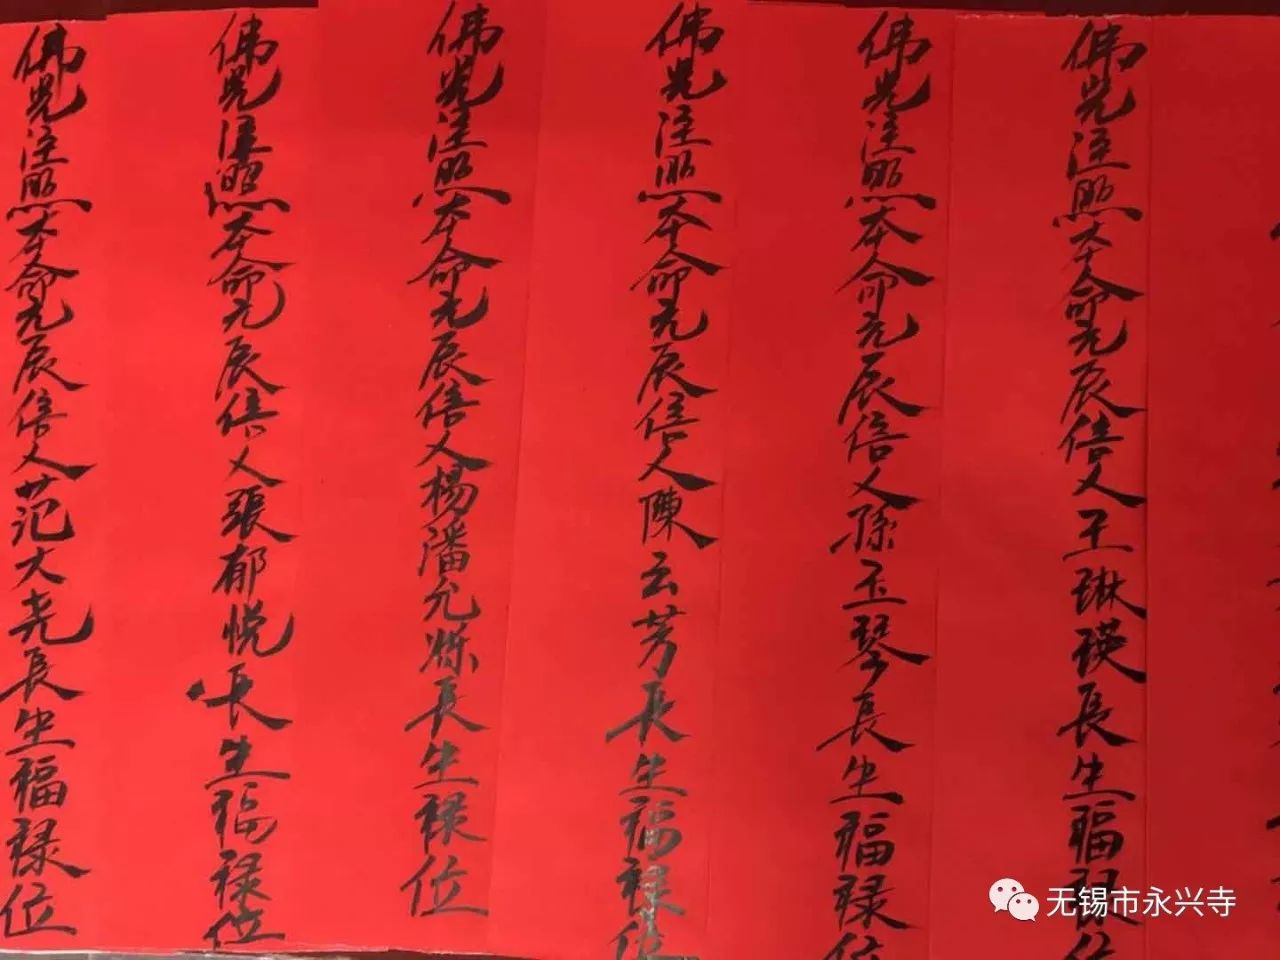 佛光注照本命元辰信人王琳瑛長生福禄位
佛光注照本命元辰信人孫玉琴長生福禄位
佛光注照本命元辰信人陳云芳長生福禄位
佛光注照本命元辰信人楊潘允烁長生禄位
佛光注照本命元辰信人張郁悦長生福禄位
佛光注照本命元辰信人范大尧長生福禄位
无锡市永兴寺